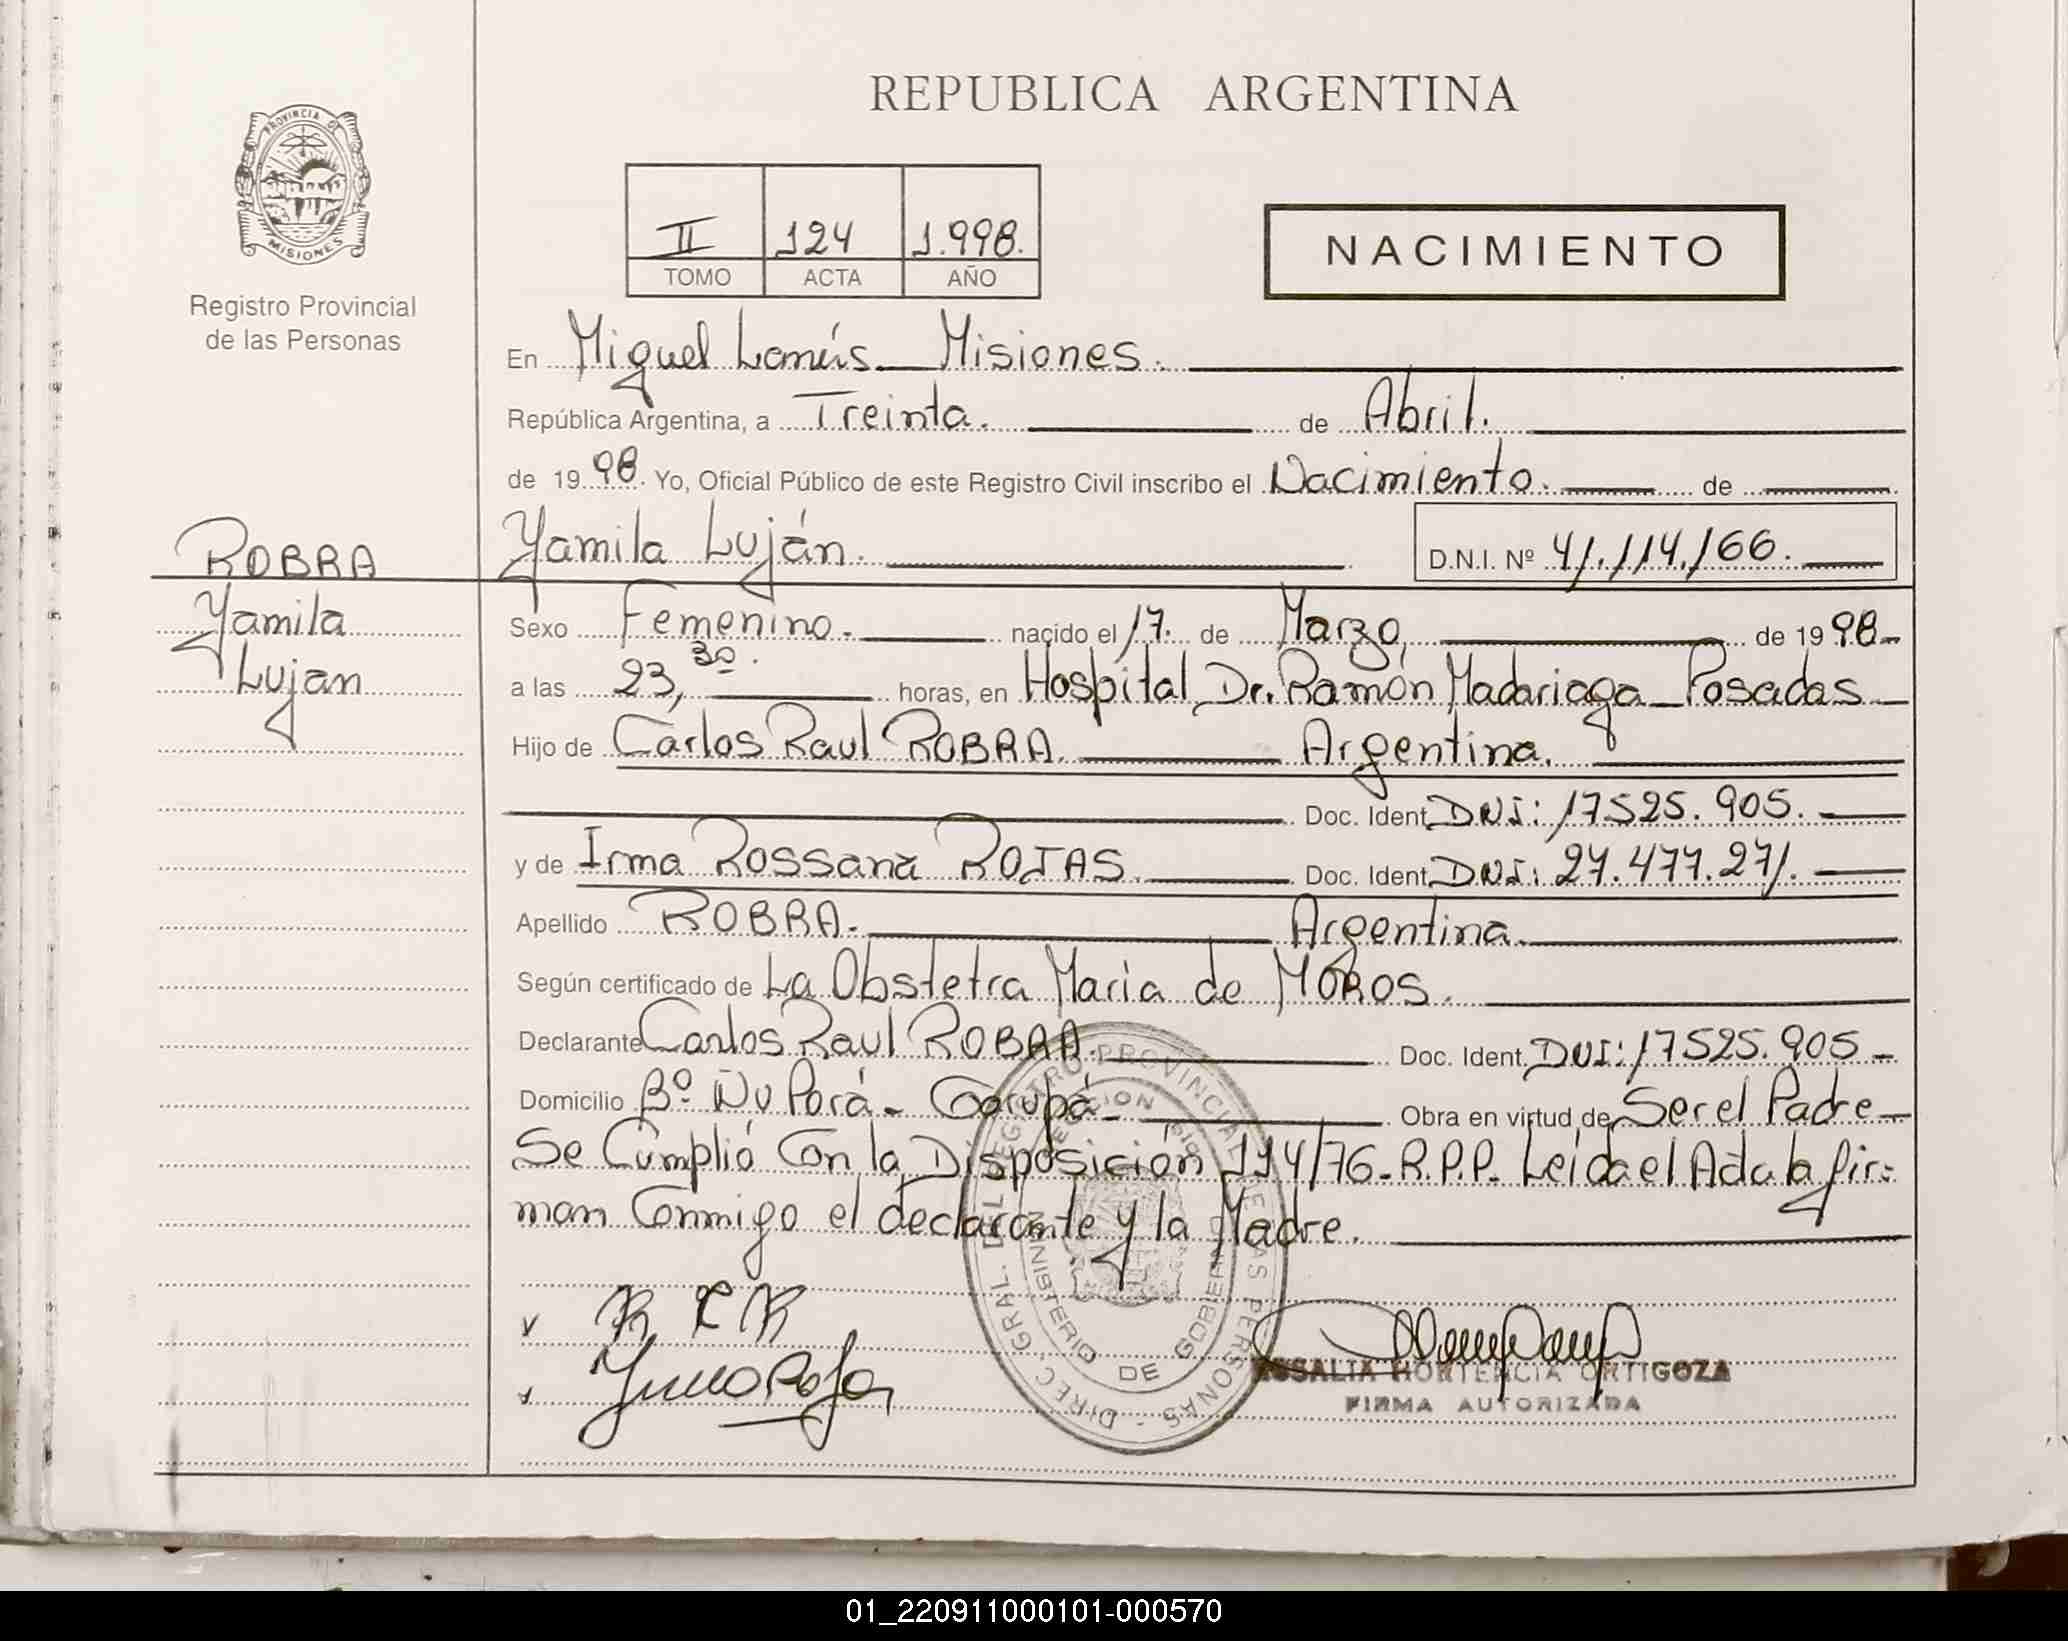 REPUBLICA ARGENTINA
PROVINCIA DE
MISIONES
Registro Provincial
de las Personas
II 124 1.998.
TOMO ACTA AÑO
NACIMIENTO
En Miguel Lanús_ Misiones.
República Argentina, a Treinta. de Abril.
de 1998. Yo, Oficial Público de este Registro Civil inscribo el Nacimiento. de
ROBRA
Yamila
Lujan
Yamila Luján. D.N.I. Nº 41.114.166.
Sexo Femenino. nacido el 17. de Marzo, de 1998
a las 23,30. horas, en Hospital Dr. Ramón Madariaga_Posadas
Hijo de Carlos Raul ROBRA. Argentina.
Doc. Ident. DNI: 17525.905.
y de Irma Rossana ROJAS. Doc. Ident. DNI: 27.477.271.
Apellido ROBRA. Argentina.
Según certificado de La Obstetra Maria de MOROS.
Declarante Carlos Raul ROBRA. Doc. Ident. DNI: 17525.905
Domicilio Bº Ñu Porá - Garupá- Obra en virtud de Ser el Padre
Se Cumplió Con la Disposición 114/76-R.P.P. Leída el Acta la fir=
man Conmigo el declarante y la Madre.
DIREC. GRAL. DEL REGISTRO PROVINCIAL DE LAS PERSONAS
MINISTERIO DE GOBIERNO
ROSALIA HORTENCIA ORTIGOZA
FIRMA AUTORIZADA
01_220911000101-000570